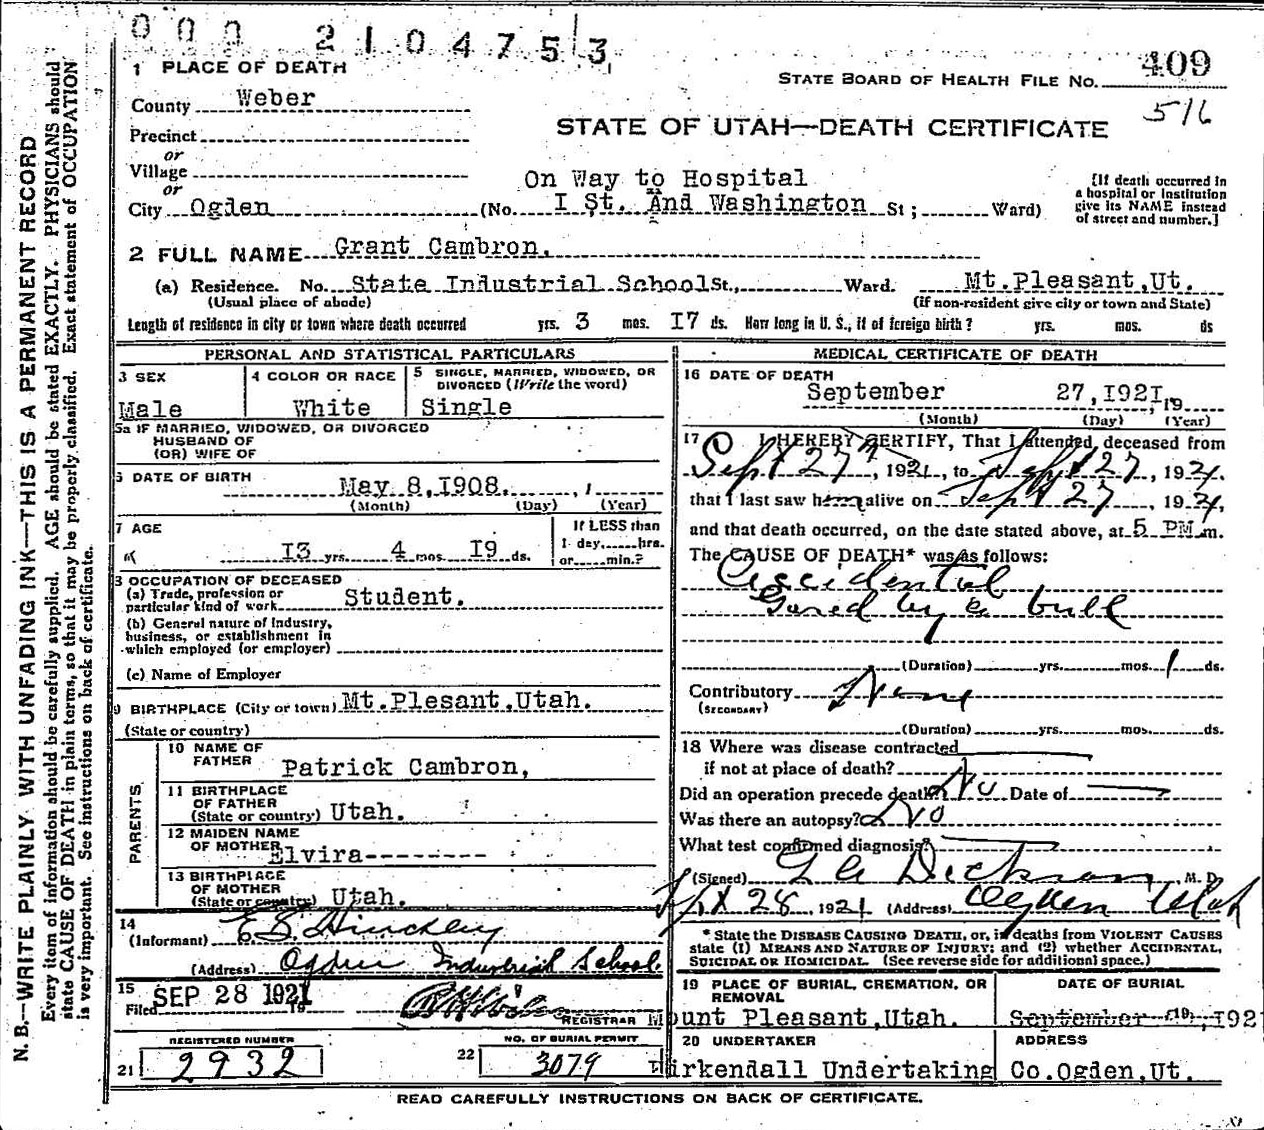 000 2104753
1 PLACE OF DEATH
STATE BOARD OF HEALTH FILE NO. 409
516
County Weber
STATE OF UTAH—DEATH CERTIFICATE
Precinct
or
Village
or
On Way to Hospital
City Ogden (No. I St. And Washington St; Ward)
[If death occurred in a hospital or institution give its NAME instead of street and number.]
2 FULL NAME Grant Cambron.
(a) Residence. No. State Industrial School St., Ward. Mt.Pleasant,Ut.
(Usual place of abode) (If non-resident give city or town and State)
Length of residence in city or town where death occurred yrs. 3 mos. I7 ds. How long in U. S., if of foreign birth? yrs. mos. ds
PERSONAL AND STATISTICAL PARTICULARS
3 SEX
Male
4 COLOR OR RACE
White
5 SINGLE, MARRIED, WIDOWED, OR DIVORCED (Write the word)
Single
5a IF MARRIED, WIDOWED, OR DIVORCED
HUSBAND OF
(OR) WIFE OF
6 DATE OF BIRTH
May 8,I908.
(Month) (Day) (Year)
7 AGE
I3 yrs. 4 mos. I9 ds.
If LESS than
1 day,.....hrs.
or.....min.?
8 OCCUPATION OF DECEASED
(a) Trade, profession or
particular kind of work Student.
(b) General nature of Industry,
business, or establishment in
which employed (or employer)
(c) Name of Employer
9 BIRTHPLACE (City or town) Mt.Plesant,Utah.
(State or country)
PARENTS
10 NAME OF
FATHER Patrick Cambron,
11 BIRTHPLACE
OF FATHER
(State or country) Utah.
12 MAIDEN NAME
OF MOTHER Elvira--------
13 BIRTHPLACE
OF MOTHER
(State or country) Utah.
14
(Informant) E.S. Hinckley
(Address) Ogden Industrial School.
15
Filed SEP 28 1921 19
REGISTRAR
REGISTERED NUMBER
21 2932
NO. OF BURIAL PERMIT
22 3079
MEDICAL CERTIFICATE OF DEATH
16 DATE OF DEATH
September 27,I92I, 19
(Month) (Day) (Year)
17 I HEREBY CERTIFY, That I attended, deceased from
Sept 27, 1921, to Sept 27, 1921,
that I last saw him alive on Sept 27, 1921,
and that death occurred, on the date stated above, at 5 PM m.
The CAUSE OF DEATH* was as follows:
Accidental
Gored by a bull
(Duration) yrs. mos. 1 ds.
Contributory None
(SECONDARY)
(Duration) yrs. mos. ds.
18 Where was disease contracted
if not at place of death?
Did an operation precede death? No Date of
Was there an autopsy? No
What test confirmed diagnosis?
(Signed) Dickson M. D.
Sept 28, 1921 (Address) Ogden Utah
* State the DISEASE CAUSING DEATH, or, in deaths from VIOLENT CAUSES
state (1) MEANS AND NATURE OF INJURY; and (2) whether ACCIDENTAL,
SUICIDAL OR HOMICIDAL. (See reverse side for additional space.)
19 PLACE OF BURIAL, CREMATION, OR REMOVAL
Mount Pleasant,Utah.
DATE OF BURIAL
September ,I921
20 UNDERTAKER
irkendall Undertaking
ADDRESS
Co.Ogden,Ut.
READ CAREFULLY INSTRUCTIONS ON BACK OF CERTIFICATE.
N. B.—WRITE PLAINLY, WITH UNFADING INK—THIS IS A PERMANENT RECORD
Every item of information should be carefully supplied. AGE should be stated EXACTLY. PHYSICIANS should
state CAUSE OF DEATH in plain terms, so that it may be properly classified. Exact statement of OCCUPATION
is very important. See instructions on back of certificate.